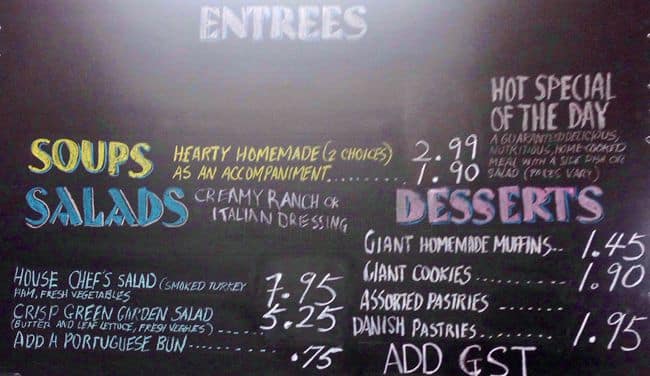 ENTREES
HOT SPECIAL
OF THE DAY
A GUARANTEED DELICIOUS,
NUTRITIOUS, HOME-COOKED
MEAL WITH A SIDE DISH OR
SALAD (PRICES VARY)
SOUPS
HEARTY HOMEMADE (2 CHOICES) 2.99
AS AN ACCOMPANIMENT.......... 1.90
SALADS
CREAMY RANCH OR
ITALIAN DRESSING
HOUSE CHEF'S SALAD (SMOKED TURKEY 7.95
HAM, FRESH VEGETABLES
CRISP GREEN GARDEN SALAD 5.25
(BUTTER AND LEAF LETTUCE, FRESH VEGGIES)......
ADD A PORTUGUESE BUN...... .75
DESSERTS
GIANT HOMEMADE MUFFINS.. 1.45
GIANT COOKIES.......... 1.90
ASSORTED PASTRIES.......
DANISH PASTRIES....... 1.95
ADD GST